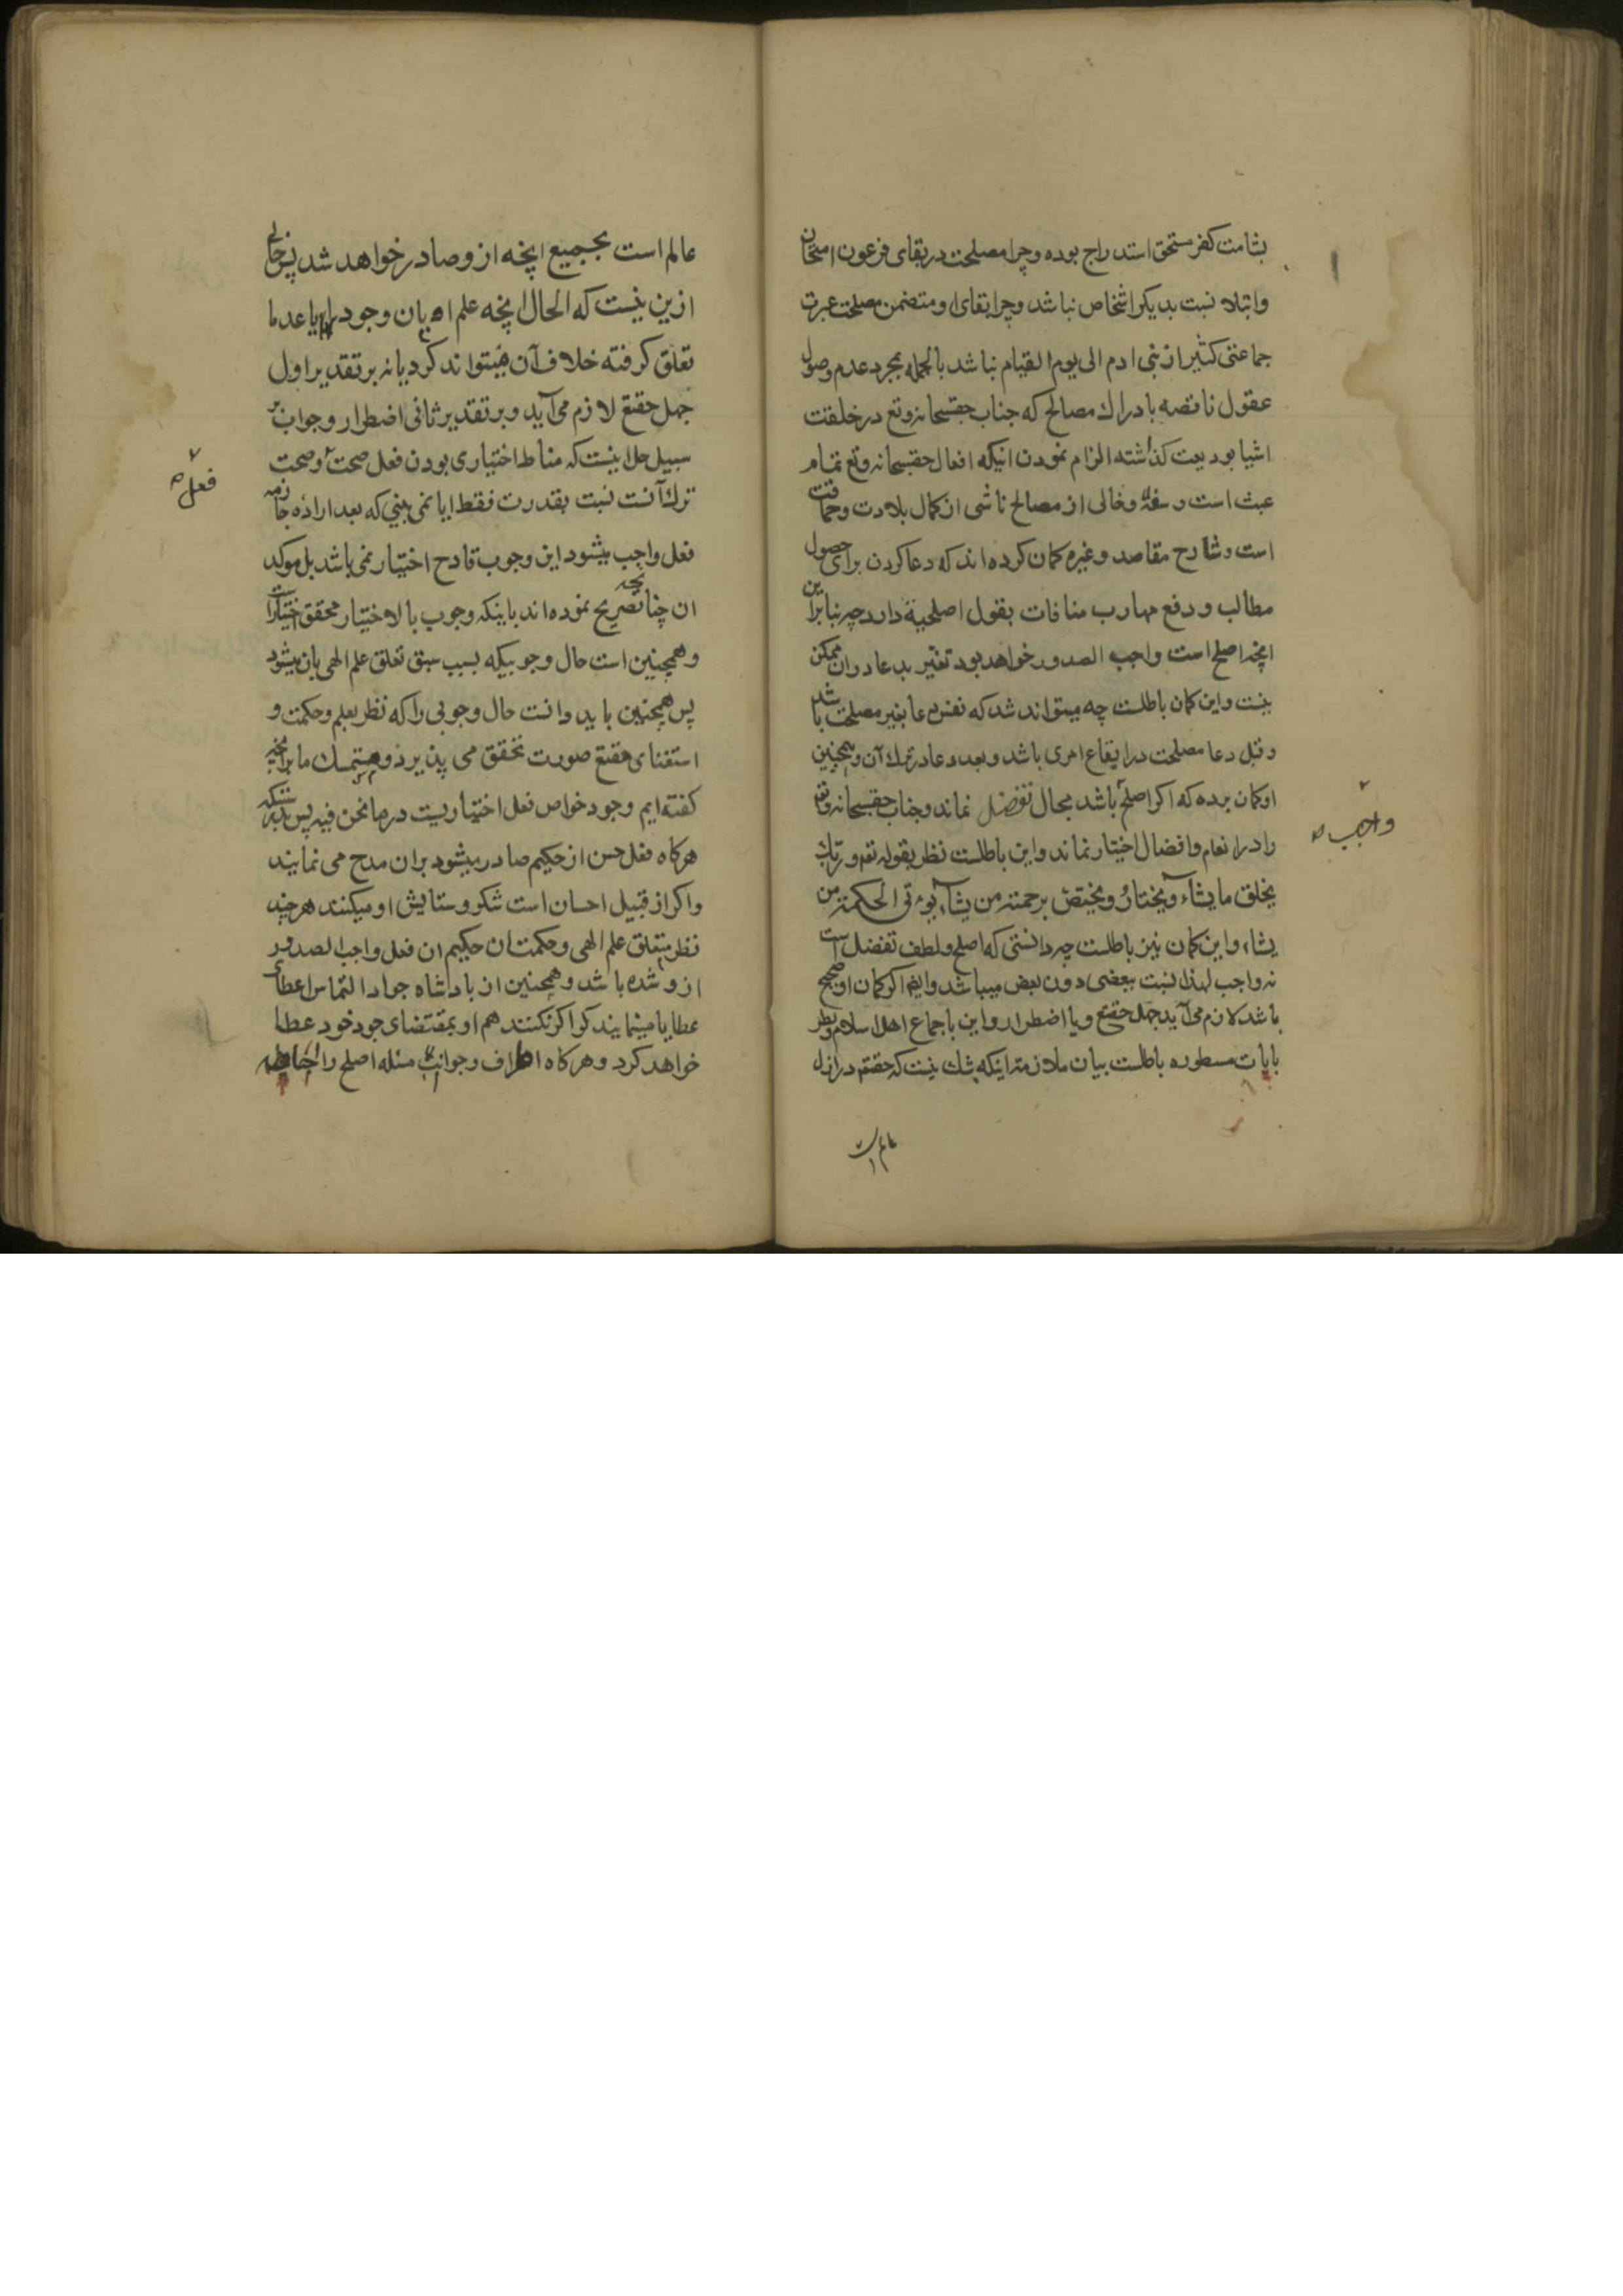 بشامت کفر مستحق استدراج بوده و چرا مصلحت در بقای فرعون امتحان
وابتلا نسبت بدیکر اشخاص نباشد و چرا بقای او متضمن مصلحت عبرت
جماعتی کثیر از بنی ادم الی یوم القیام نباشد بالجمله بمجرد عدم وصول
عقول ناقصه بادراك مصالح که جناب حقسبحانه وتع در خلقت
اشیا بودیعت کذاشته الزام نمودن اینکه افعال حقسبحانه وتع تمام
عبث است و سفه وخالی از مصالح ناشی از کمال بلادت وحماقت
است و شارح مقاصد و غیره کمان کرده اند که دعا کردن برای حصول
مطالب و دفع مهارب منافات بقول اصلحیة دارد چه بنابراین
انچه اصلح است واجب الصدور خواهد بود تغییر بدعا دران ممکن
نیست واین کمان باطلست چه میتواند شد که نفس دعا بغیر مصلحت باشد
و قبل دعا مصلحت در ایقاع امری باشد و بعد دعا در ترك آن و همچنین
او کمان برده که اکر اصلح باشد مجال تفضل نماند وجناب حقسبحانه وتع
را در انعام وافضال اختیار نماند واین باطلست نظر بقوله تعم و ربّك
یخلق ما یشآء ویختارُ ویختصّ برحمته من یشآء یؤتی الحکمة من
یشاء واین کمان نیز باطلست چه دانستی که اصلح ولطف تفضل است
نه واجب لهذا نسبت ببعضی دون بعض میباشد وایضا اکر کمان او صحیح
باشد لازم می آید جهل حقتع ویا اضطرار و این باجماع اهل اسلام ونظر
بایات مسطوره باطلست بیان ملازمه اینکه شك نیست که حقتع در ازل
واجب صح
عالم است
عالم است بجمیع انچه از وصادر خواهد شد پس خالی
ازین نیست که الحال انچه علم او بان وجودا یا عدما
تعلق کرفته خلاف آن میتواند کرد یا نه بر تقدیر اول
جهل حقتع لازم می آید و بر تقدیر ثانی اضطرار وجواب بر
سبیل حل اینست که مناط اختیاری بودن فعل صحت وصحت
ترك آنست نسبت بقدرت فقط ایا نمی بینی که بعد اراده جازمه
فعل واجب میشود این وجوب قادح اختیار نمی باشد بل موکد
ان چنانچه تصریح نموده اند باینکه وجوب بالاختیار محقق اختیار است
و همچنین است حال وجوبیکه بسبب سبق تعلق علم الهی بان میشود
پس همچنین باید دانست حال وجوبی را که نظر بعلم وحکمت و
استغنای حقتع صورت تحقق می پذیرد و متمسك ما برانچه
کفته ایم وجود خواص فعل اختیاریست در ما نحن فیه پس بدرستیکه
هرکاه فعل حسن از حکیم صادر میشود بران مدح می نمایند
واکر از قبیل احسان است شکر وستایش او میکنند هرچند
نظر بتعلق علم الهی وحکمت ان حکیم ان فعل واجب الصدور
ازو شده باشد و همچنین از بادشاه جواد التماس اعطای
عطایا مینمایند کو اکر نکنند هم او بمقتضای جود خود عطا
خواهد کرد و هرکاه اطراف وجوانب مسئله اصلح را
فعل صح